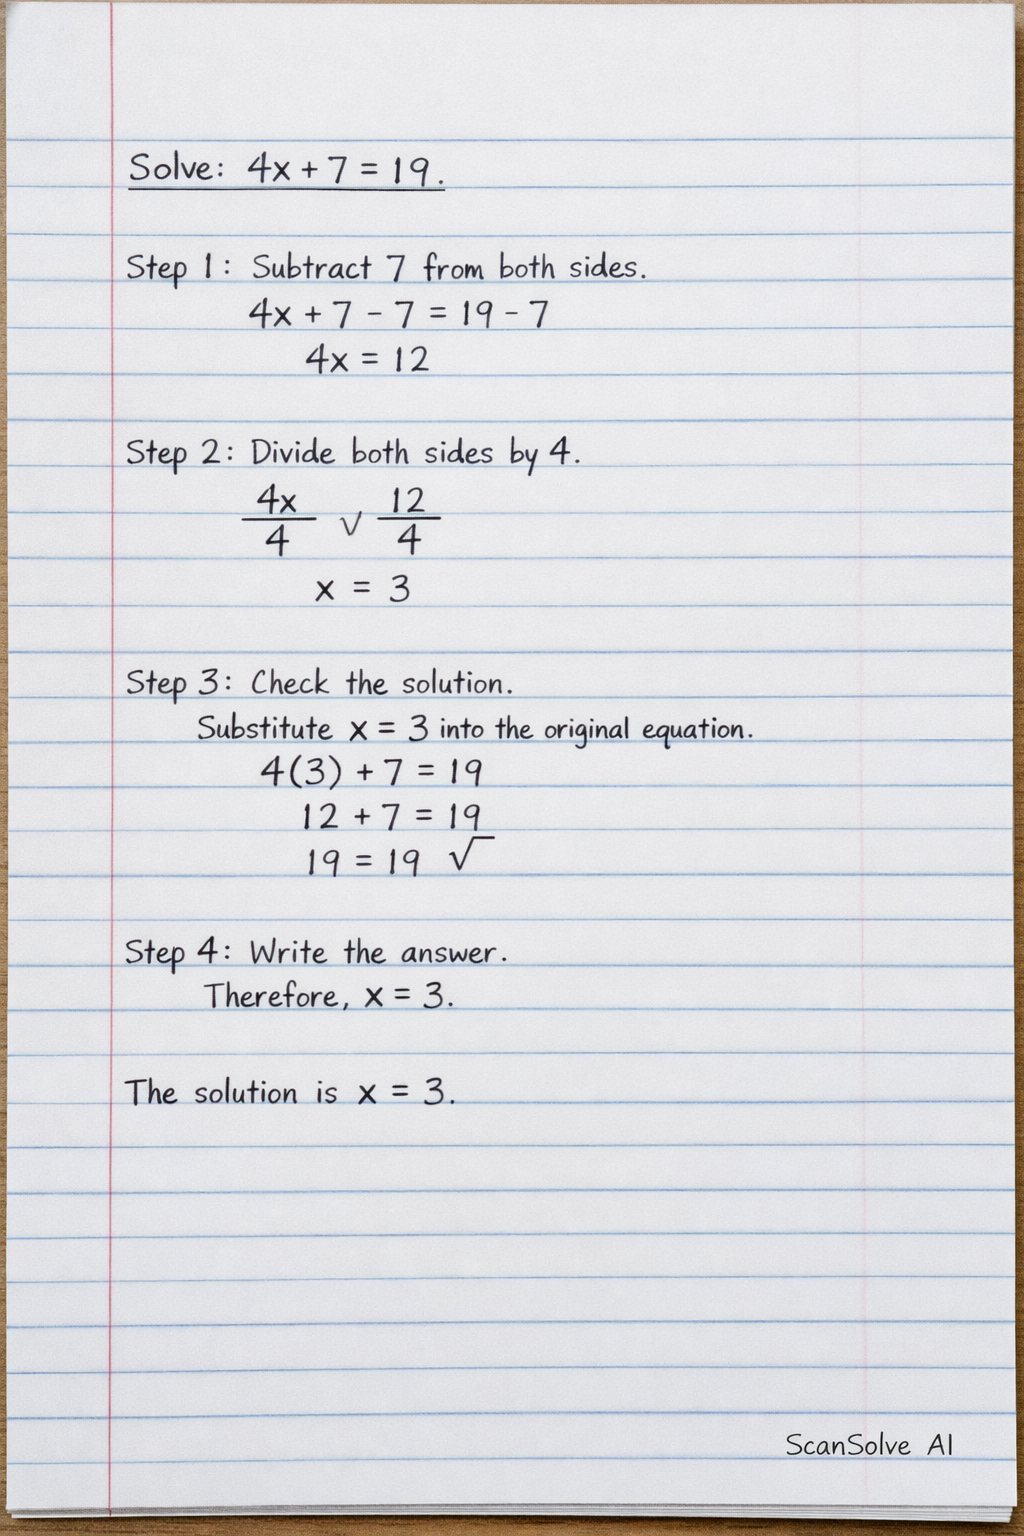 Solve: 4x + 7 = 19.
Step 1: Subtract 7 from both sides.
4x + 7 - 7 = 19 - 7
4x = 12
Step 2: Divide both sides by 4.
4x/4 ✓ 12/4
x = 3
Step 3: Check the solution.
Substitute x = 3 into the original equation.
4(3) + 7 = 19
12 + 7 = 19
19 = 19 √
Step 4: Write the answer.
Therefore, x = 3.
The solution is x = 3.
ScanSolve AI